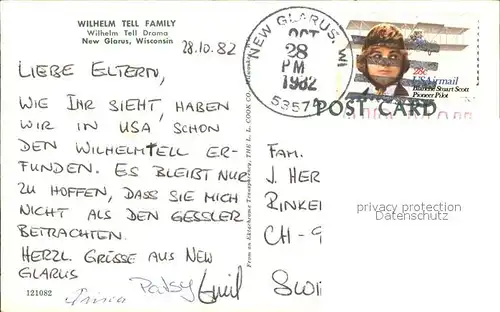 WILHELM TELL FAMILY
Wilhelm Tell Drama
New Glarus, Wisconsin
28.10.82
LIEBE ELTERN,
WIE IHR SIEHT, HABEN
WIR IN USA, SCHON
DEN WILHELMTELL ER-
FUNDEN. ES BLEIBT NUR
ZU HOFFEN, DASS SIE MICH
NICHT ALS DEN GESSLER
BETRACHTEN.
HERZL. GRÜSSE AUS NEW
GLARUS
Patsy Emil
121082
From an Ektachrome Transparency, THE L. L. COOK CO.
NEW GLARUS, WI
OCT
28
PM
1982
5357
28c
USAirmail
Blanche Stuart Scott
Pioneer Pilot
POST CARD
FAM.
J. HER
RINKE
CH-9
SWI
privacy protection
Datenschutz